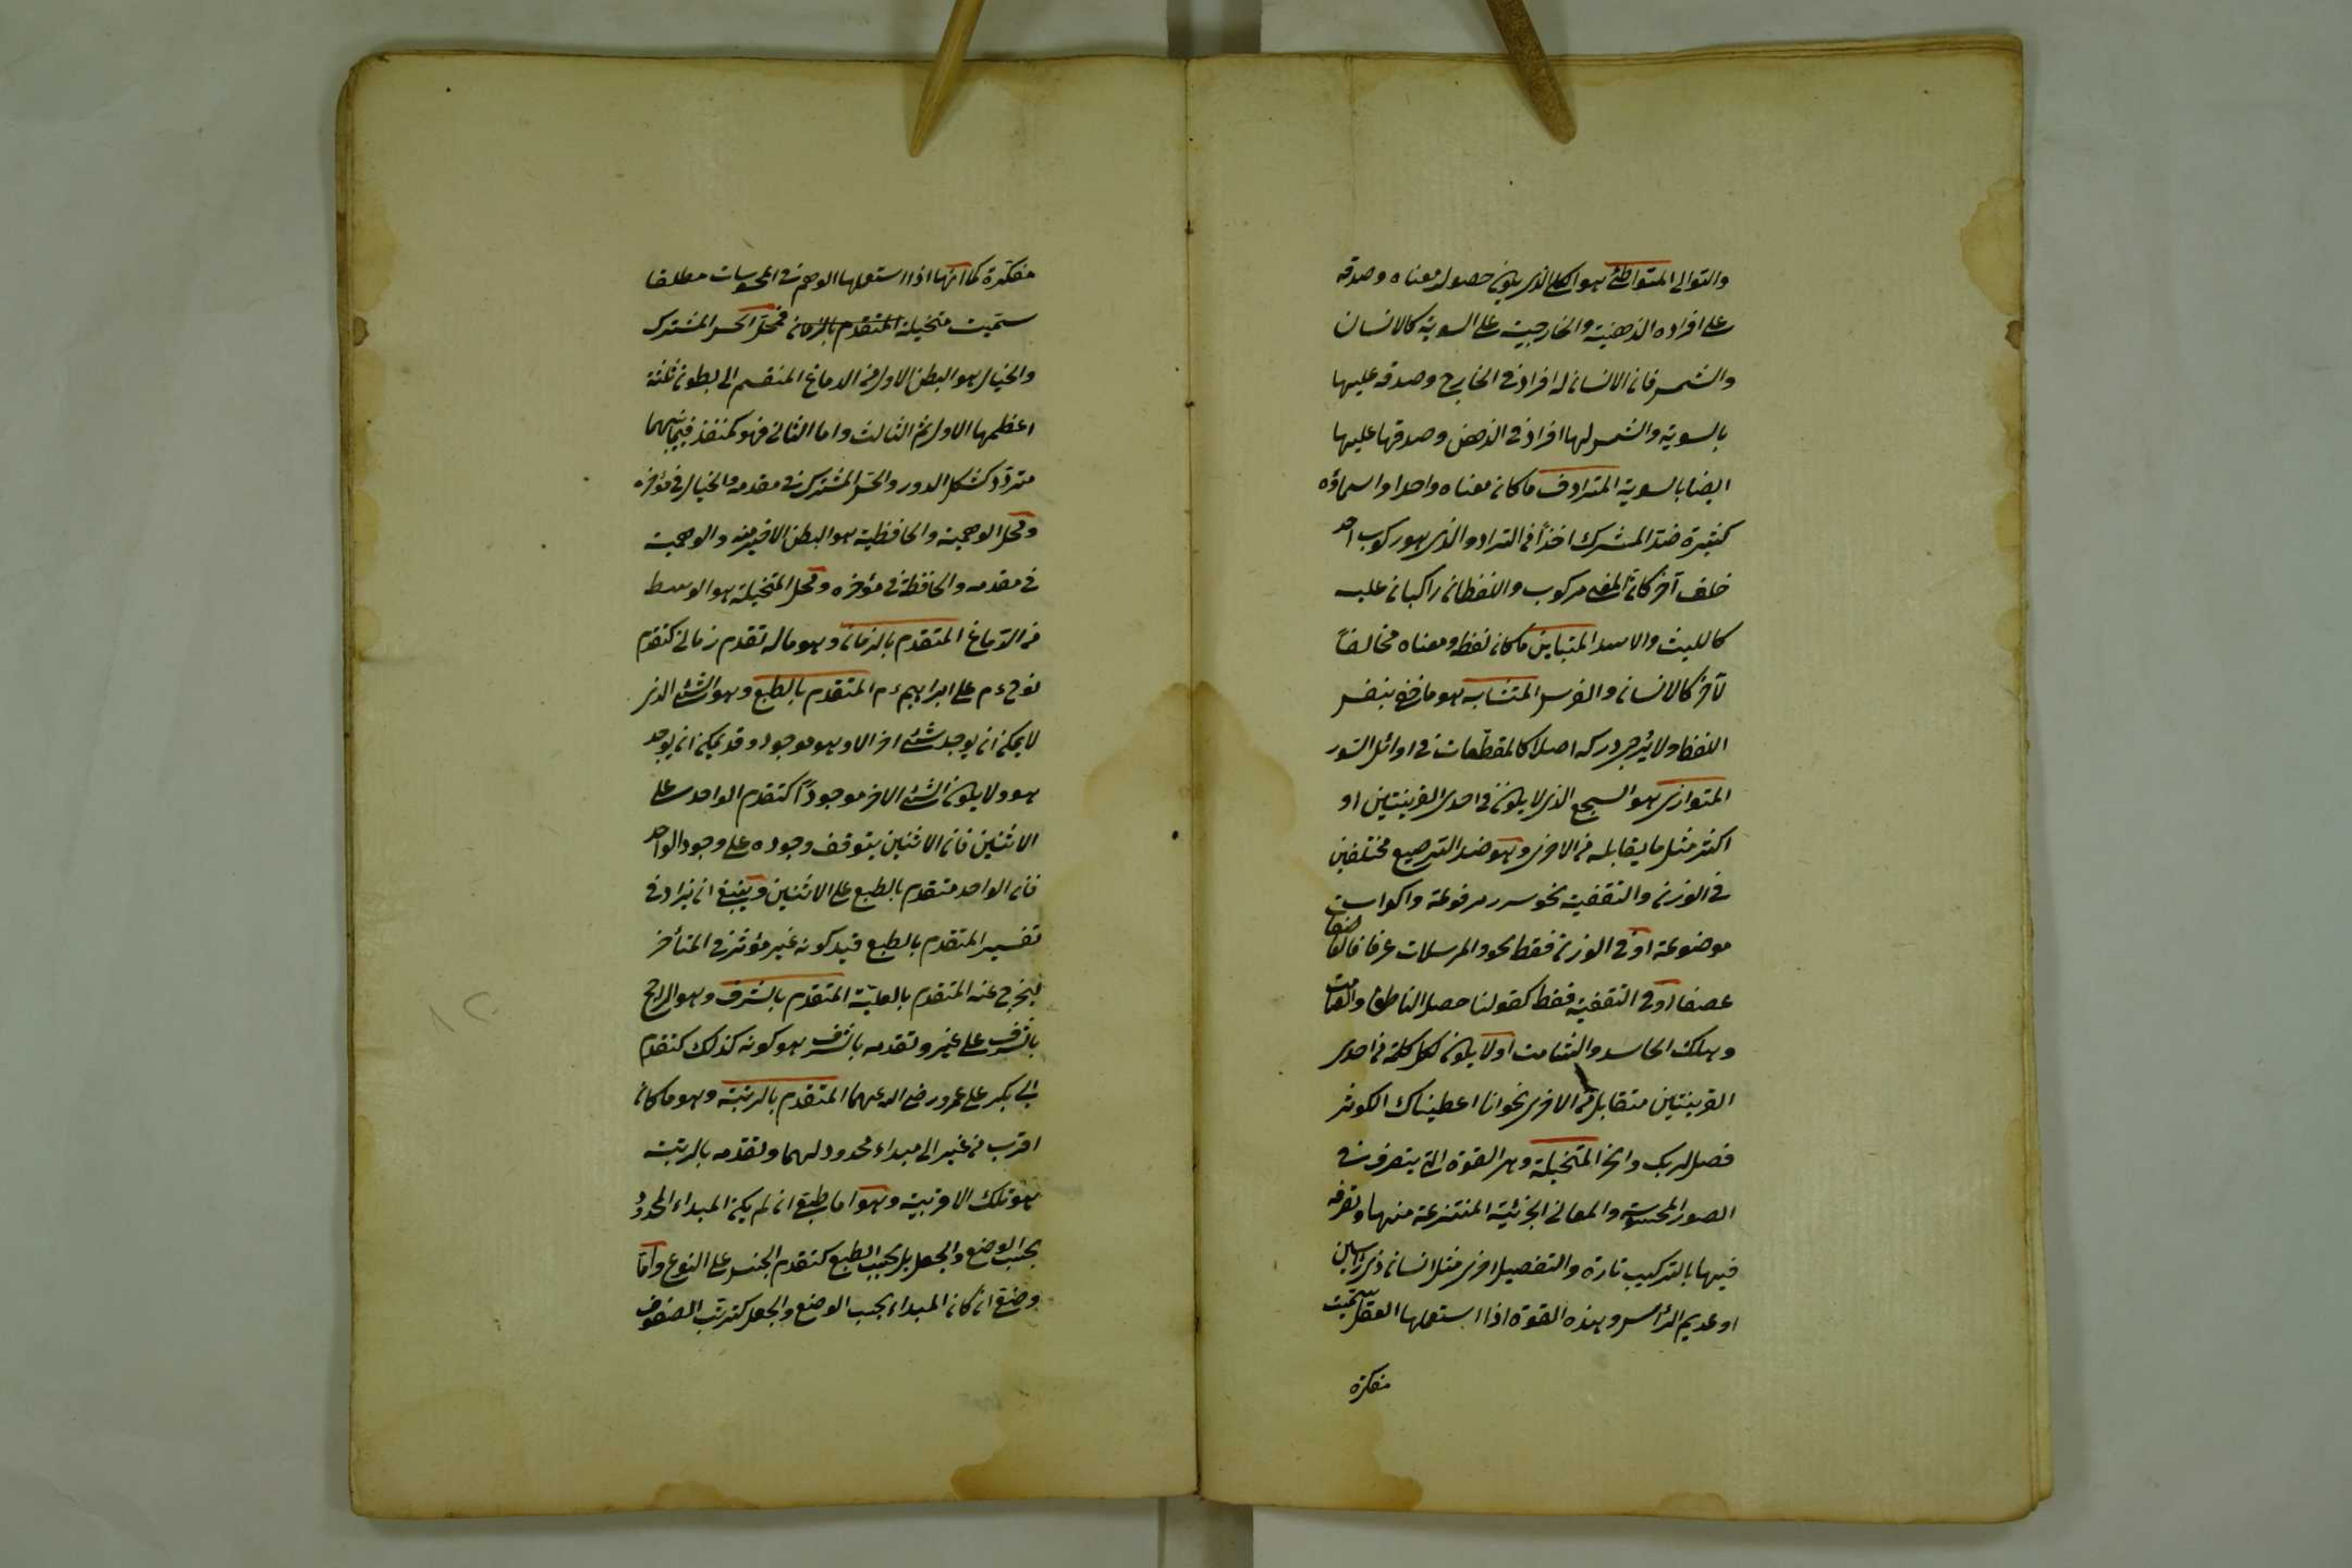 والتوالى المتواطئ هو الكلى الذى يكون حصول معناه وصدقه
على افراده الذهنية والخارجية على السوية كالانسان
والشمس فان الانسان له افراد فى الخارج وصدقه عليها
بالسوية والشمس لها افراد فى الذهن وصدقها عليها
ايضا بالسوية المترادف ما كان معناه واحدا واسماؤه
كثيرة ضد المشترك اخذا من الترادف الذى هو ركوب احد
خلف آخر كان المعنى مركوب واللفظان راكبان عليه
كالليث والاسد المتباين ما كان لفظه ومعناه مخالفا
لآخر كالانسان والفرس المتشابه هو ما خفى بنفس
اللفظ ولا يرجى دركه اصلا كالمقطعات فى اوائل السور
المتوازى هو السجع الذى لا يكون فى احدى القرينتين او
اكثر مثل ما يقابله من الاخرى وهو ضد الترصيع مختلفين
فى الوزن والتقفية نحو سرر مرفوعة واكواب
موضوعة او فى الوزن فقط نحو والمرسلات عرفا فالعاصفات
عصفا او فى التقفية فقط كقولنا حصل الناطق والصامت
وهلك الحاسد والشامت او لا يكون لكل كلمة من احدى
القرينتين متقابل من الاخرى نحو انا اعطيناك الكوثر
فصل لربك وانحر المتخيلة وهى القوة التى يتصرف فى
الصور المحسوسة والمعانى الجزئية المنتزعة منها وتصرفه
فيها بالتركيب تارة والتفصيل اخرى مثل انسان ذى رأسين
او عديم الرأس وهذه القوة اذا استعملها العقل سميت
مفكرة
مفكرة كما انها اذا استعملها الوهم فى المحسوسات مطلقا
سميت متخيلة المتقدم بالزمان فمحل الحس المشترك
والخيال هو البطن الاول من الدماغ المنقسم الى بطون ثلثة
اعظمها الاول ثم الثالث واما الثانى فهو كمنفذ فيما بينهما
متردد كشكل الدور والحس المشترك فى مقدمه والخيال فى مؤخره
ومحل الوهمية والحافظية هو البطن الاخير منه والوهمية
فى مقدمه والحافظة فى مؤخره ومحل المتخيلة هو الوسط
من الدماغ المتقدم بالزمان وهو ما له تقدم زمانى كتقدم
نوح ءم على ابراهيم ءم المتقدم بالطبع وهو الشئ الذى
لا يمكن ان يوجد شئ اخر الا وهو موجود وقد يمكن ان يوجد
هو ولا يكون الشئ الاخر موجودا كتقدم الواحد على
الاثنين فان الاثنين يتوقف وجوده على وجود الواحد
فان الواحد متقدم بالطبع على الاثنين وينبغى ان يزاد فى
تفسير المتقدم بالطبع قيد كونه غير مؤثر فى المتأخر
ليخرج عنه المتقدم بالعلية المتقدم بالشرف وهو الراجح
بالشرف على غيره وتقدمه بالشرف هو كونه كذلك كتقدم
ابى بكر على عمر رضى الله عنهما المتقدم بالرتبة وهو ما كان
اقرب من غيره الى مبداء محدود لهما وتقدمه بالرتبة
هو تلك الاقربية وهو اما طبعى ان لم يكن المبداء المحدود
بحسب الوضع والجعل بل بحسب الطبع كتقدم الجنس على النوع واما
وضعى ان كان المبداء بحسب الوضع والجعل كترتب الصفوف